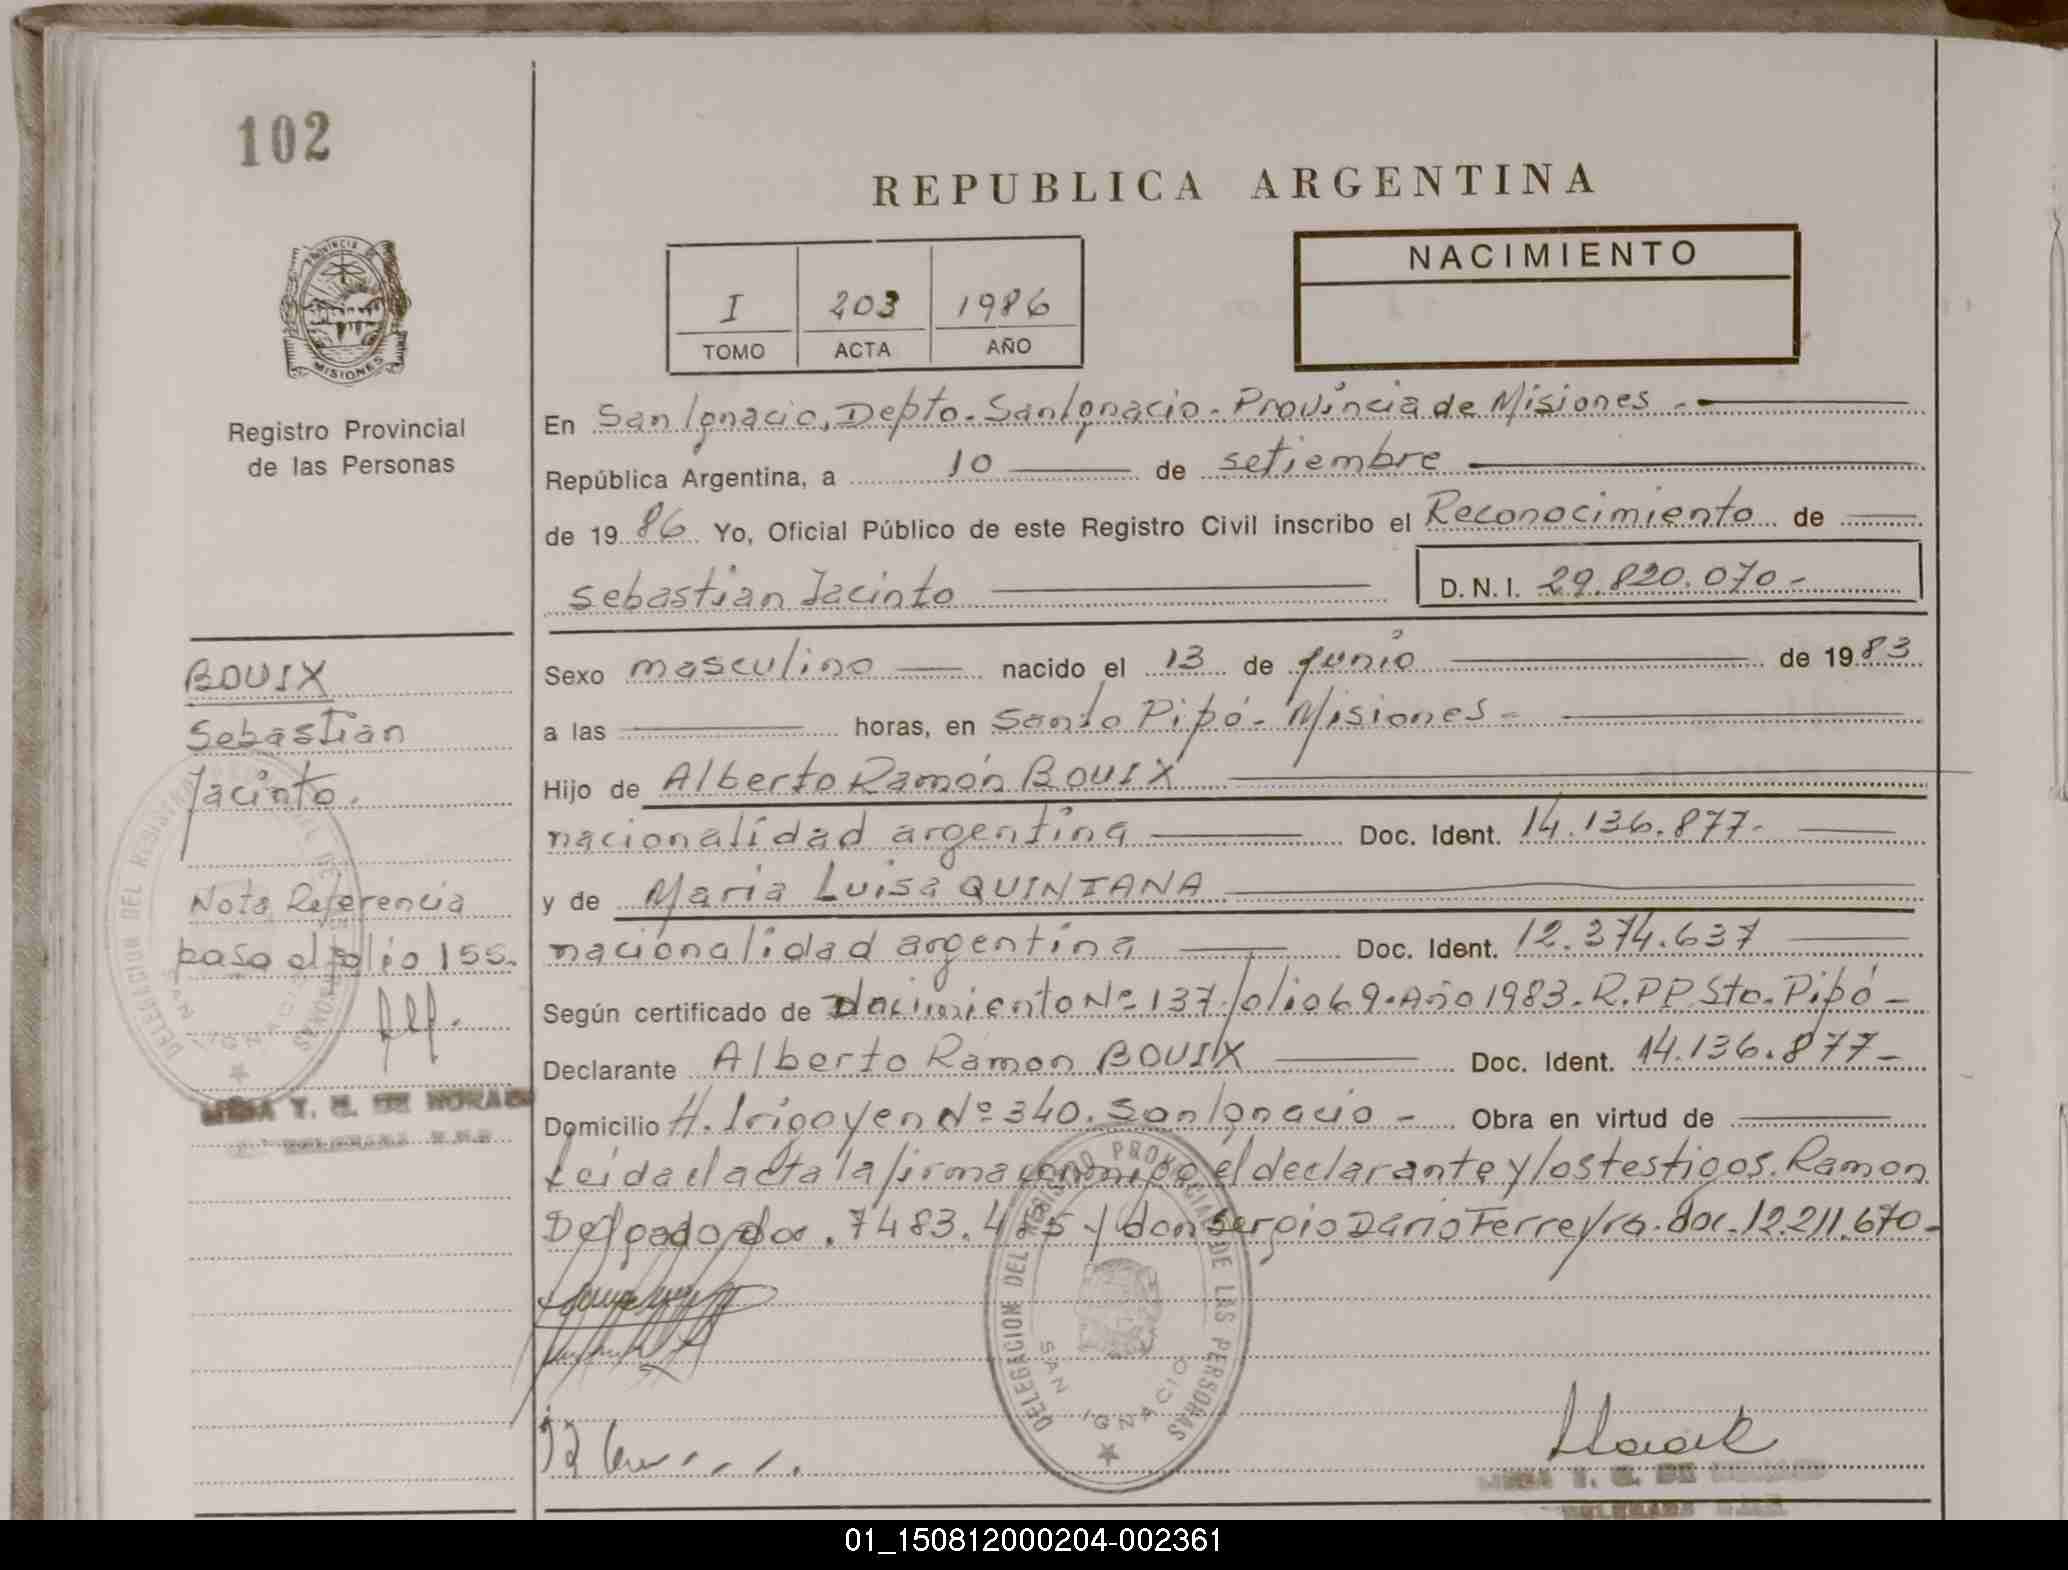 102
REPUBLICA ARGENTINA
PROVINCIA DE
MISIONES
Registro Provincial
de las Personas
I 203 1986
TOMO ACTA AÑO
NACIMIENTO
En San Ignacio, Depto. San Ignacio. Provincia de Misiones.-
República Argentina, a 10 de setiembre
de 19 86 Yo, Oficial Público de este Registro Civil inscribo el Reconocimiento de
Sebastian Jacinto D.N.I. 29.820.070.-
BOUIX
Sebastian
Jacinto.
Nota Referencia
pasa al folio 155.
Sexo masculino nacido el 13 de junio de 19 83
a las horas, en Santo Pipó - Misiones -
Hijo de Alberto Ramón BOUIX
nacionalidad argentina Doc. Ident. 14.136.877.
y de Maria Luisa QUINTANA
nacionalidad argentina Doc. Ident. 12.374.637
Según certificado de nacimiento Nº 137 folio 69. Año 1983. R.P.P. Sto. Pipó -
Declarante Alberto Ramon BOUIX Doc. Ident. 14.136.877-
Domicilio H. Irigoyen Nº 340. San Ignacio - Obra en virtud de
Leida el acta la firma conmigo, el declarante y los testigos. Ramon
Delgado doc. 7483.4 y don Sergio Dario Ferreyra. doc. 12.211.670-
DELEGACION DEL REGISTRO PROVINCIAL DE LAS PERSONAS
SAN IGNACIO
DELEGACION DEL REGISTRO PROVINCIAL DE LAS PERSONAS
SAN IGNACIO
T. G. DE
T. G. DE
01_150812000204-002361